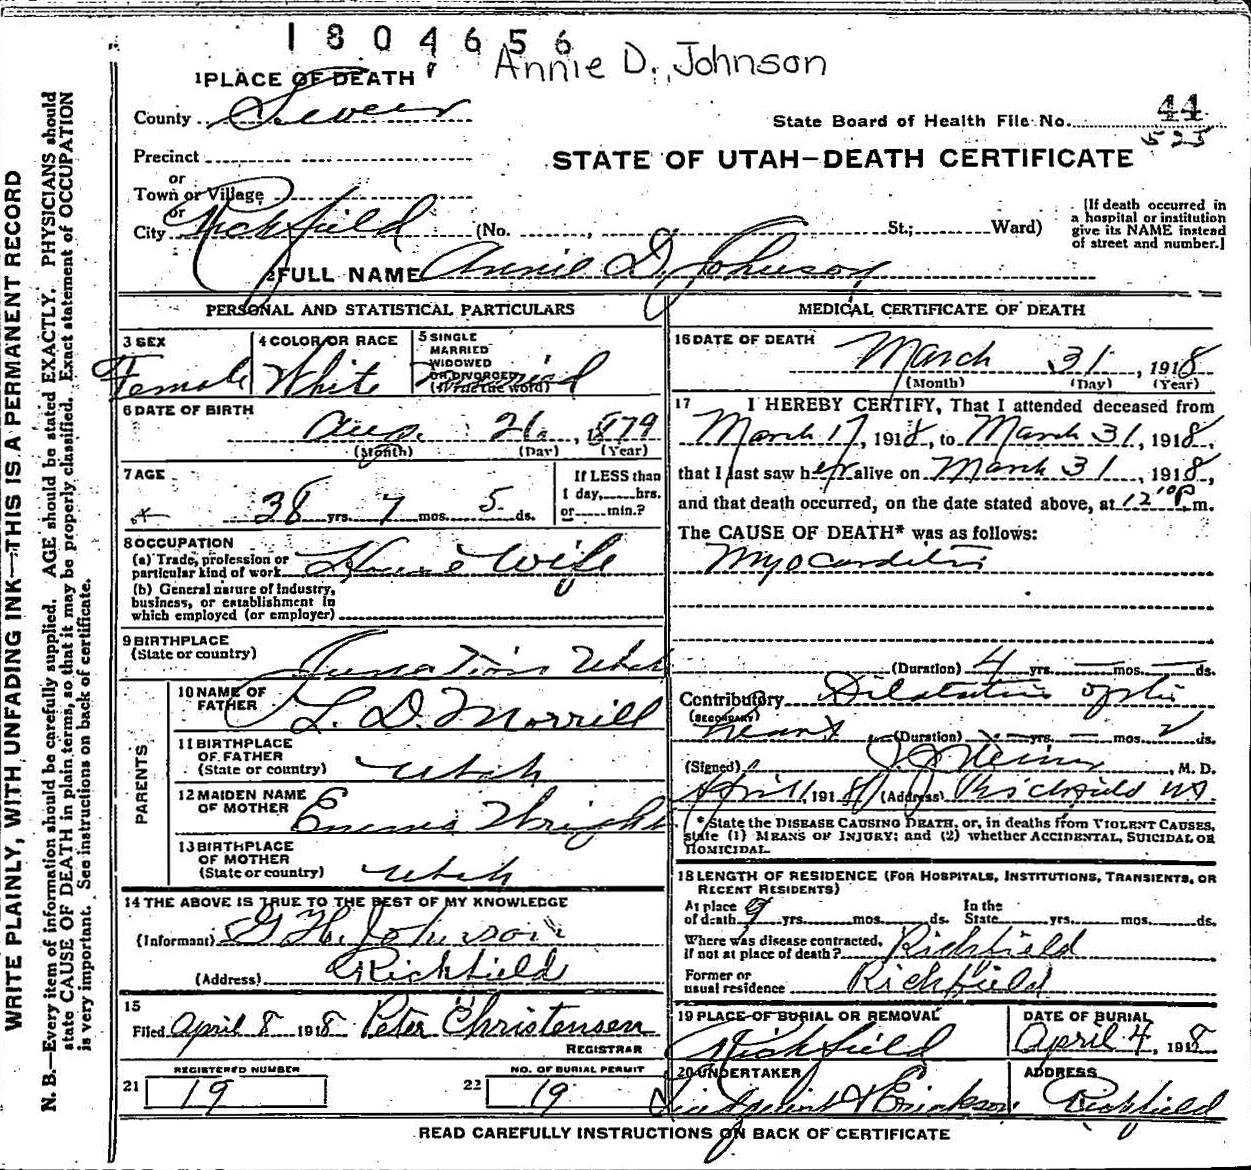 1804656
Annie D. Johnson
1 PLACE OF DEATH
County Sevier
State Board of Health File No. 44
525
Precinct
or
STATE OF UTAH—DEATH CERTIFICATE
Town or Village
or
City Richfield (No. , St.; Ward)
[If death occurred in a hospital or institution give its NAME instead of street and number.]
2 FULL NAME Annie D. Johnson
PERSONAL AND STATISTICAL PARTICULARS
3 SEX
Female
4 COLOR OR RACE
White
5 SINGLE
MARRIED
WIDOWED
OR DIVORCED
(Write the word)
Married
6 DATE OF BIRTH
Aug. 26, 1879
(Month) (Day) (Year)
7 AGE
38 yrs. 7 mos. 5 ds.
If LESS than
1 day, hrs.
or min.?
8 OCCUPATION
(a) Trade, profession or
particular kind of work House Wife
(b) General nature of industry,
business, or establishment in
which employed (or employer)
9 BIRTHPLACE
(State or country) Junction Utah
PARENTS
10 NAME OF
FATHER L. D. Morrill
11 BIRTHPLACE
OF FATHER
(State or country) Utah
12 MAIDEN NAME
OF MOTHER Emma Wright
13 BIRTHPLACE
OF MOTHER
(State or country) Utah
14 THE ABOVE IS TRUE TO THE BEST OF MY KNOWLEDGE
(Informant) G H. Johnson
(Address) Richfield
15
Filed April 8 1918 Peter Christensen
REGISTRAR
REGISTERED NUMBER
21 19
NO. OF BURIAL PERMIT
22 19
MEDICAL CERTIFICATE OF DEATH
16 DATE OF DEATH
March 31, 1918
(Month) (Day) (Year)
17 I HEREBY CERTIFY, That I attended deceased from
March 17, 1918, to March 31, 1918,
that I last saw her alive on March 31, 1918,
and that death occurred, on the date stated above, at 12 10 P. m.
The CAUSE OF DEATH* was as follows:
Myocarditis
(Duration) 4 yrs. — mos. — ds.
Contributory Dilatation of the
(SECONDARY)
heart (Duration) — yrs. — mos. ds.
(Signed) , M. D.
April 1, 1918 (Address) Richfield Ut.
*State the DISEASE CAUSING DEATH, or, in deaths from VIOLENT CAUSES,
state (1) MEANS OF INJURY; and (2) whether ACCIDENTAL, SUICIDAL OR
HOMICIDAL.
18 LENGTH OF RESIDENCE (FOR HOSPITALS, INSTITUTIONS, TRANSIENTS, OR
RECENT RESIDENTS)
At place In the
of death 9 yrs. mos. ds. State yrs. mos. ds.
Where was disease contracted,
If not at place of death? Richfield
Former or
usual residence Richfield
19 PLACE OF BURIAL OR REMOVAL
Richfield
DATE OF BURIAL
April 4, 1918
20 UNDERTAKER
& Erickson
ADDRESS
Richfield
READ CAREFULLY INSTRUCTIONS ON BACK OF CERTIFICATE
WRITE PLAINLY, WITH UNFADING INK—THIS IS A PERMANENT RECORD
N. B.—Every item of information should be carefully supplied. AGE should be stated EXACTLY. PHYSICIANS should
state CAUSE OF DEATH in plain terms, so that it may be properly classified. Exact statement of OCCUPATION
is very important. See instructions on back of certificate.